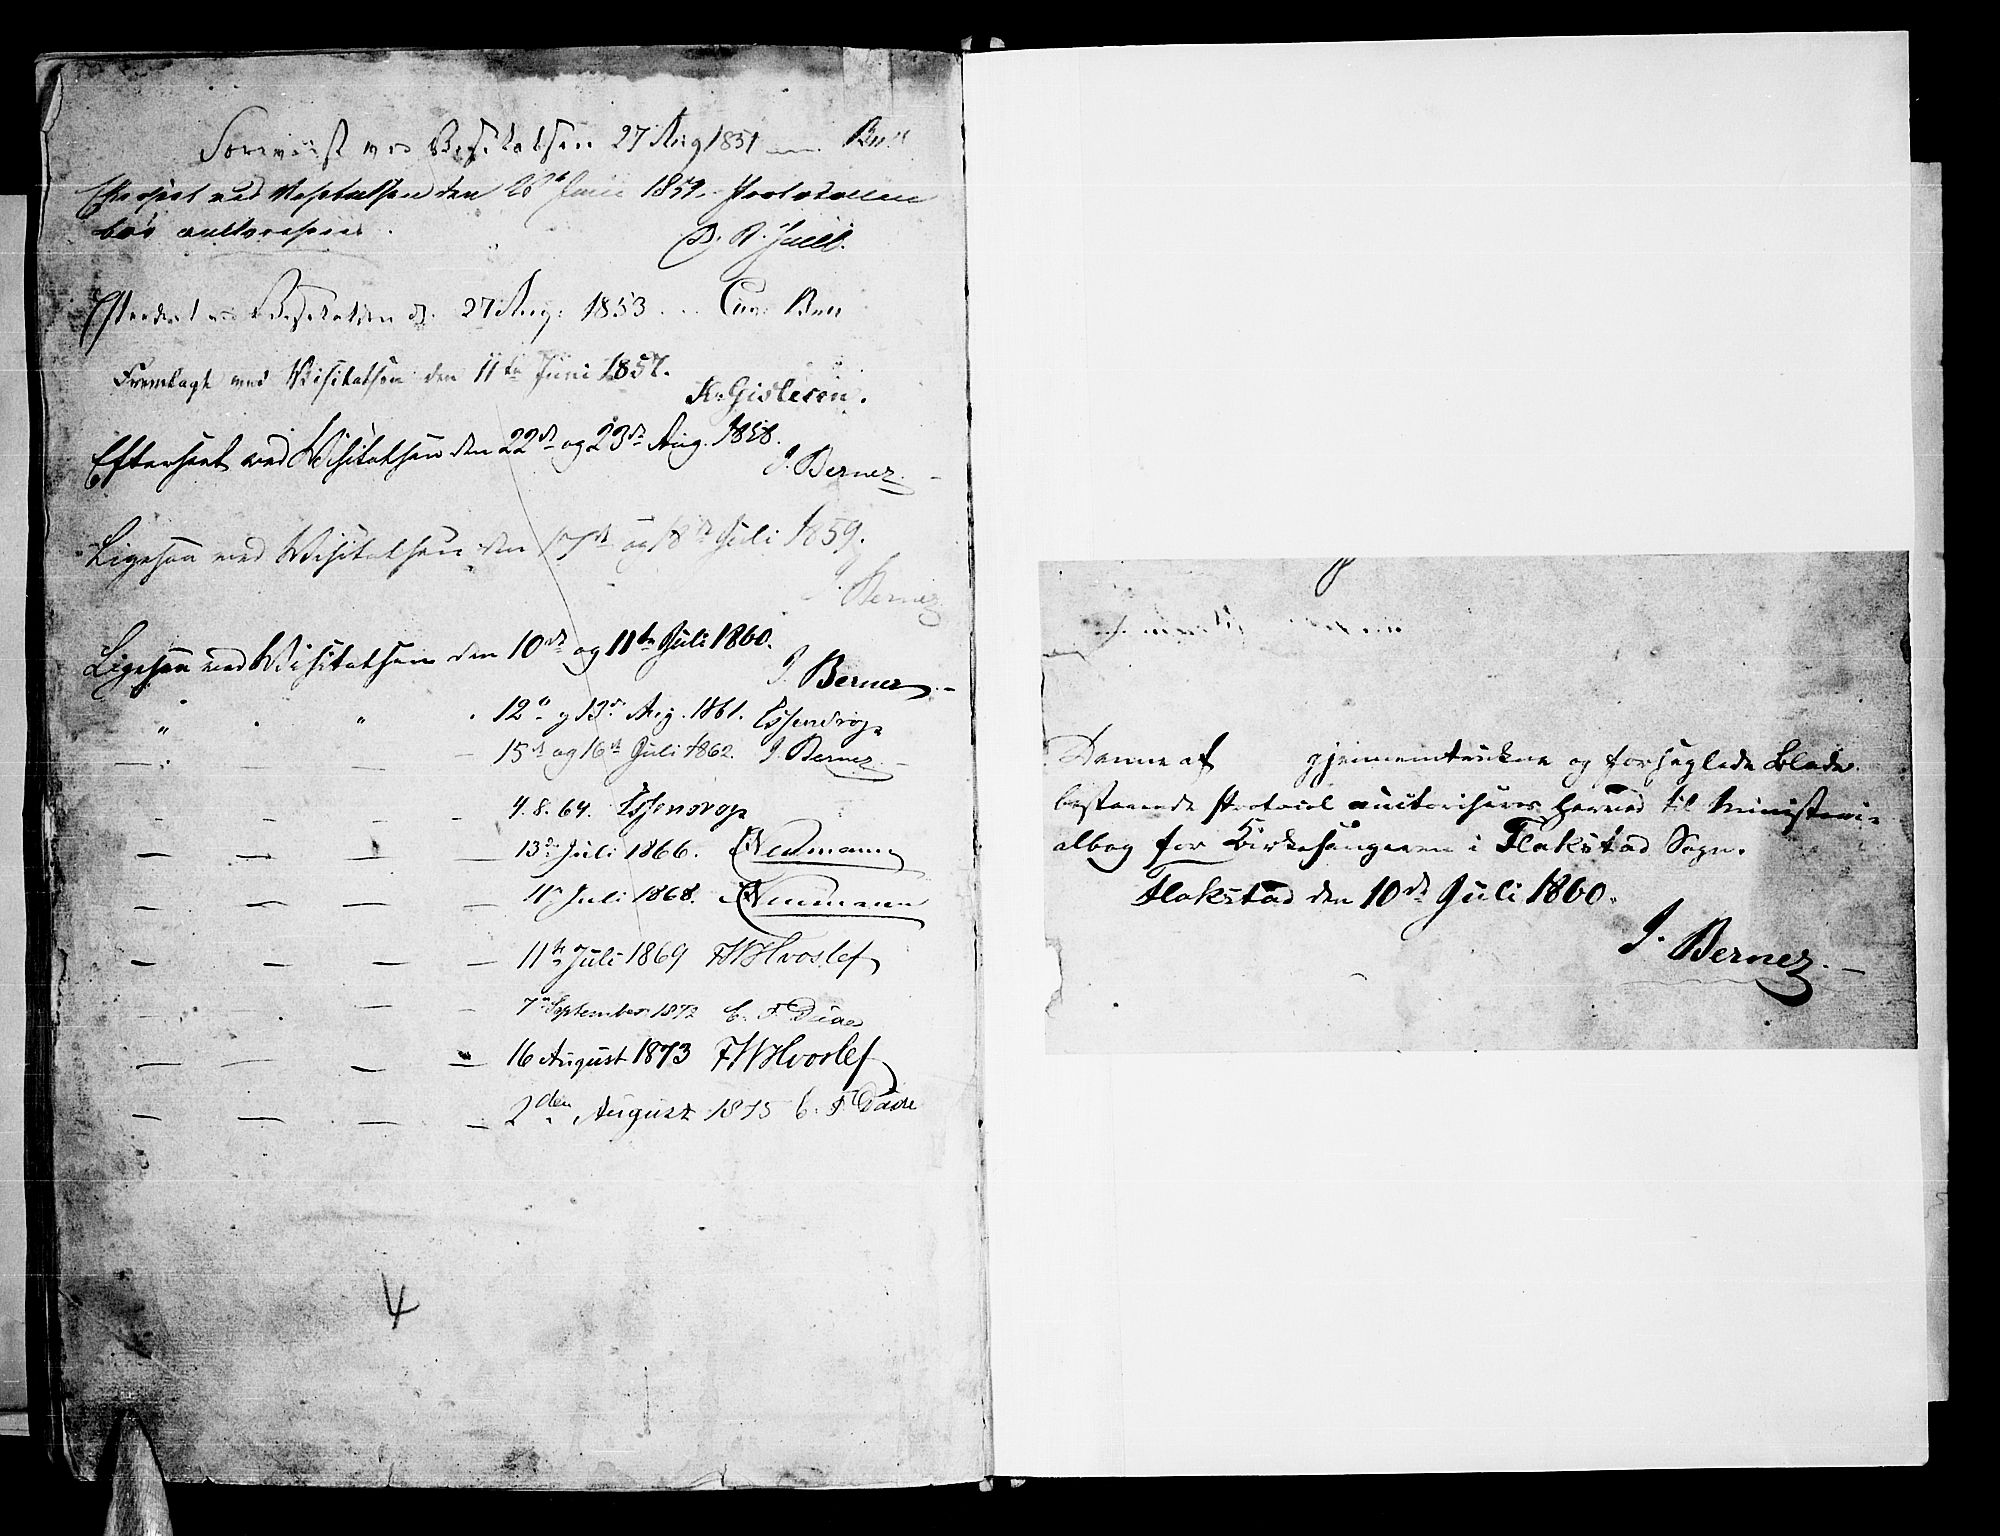 Forevist ved Visitatsen 27 Aug 1851
Efterseet ved Visitatsen den Juni 185 Protokollen
bør autoriseres.
Efterseet ved Visitatsen d. 27 Aug: 1853 Bull
Fremlagt ved Visitatsen den 11te Juni 1857.
K. Gislesen.
Efterseet ved Visitatsen den 22de og 23de Aug. 1858.
J. Berner.
Ligesaa ved Visitatsen den 17de og 18de Juli 1859.
J. Berner
Ligesaa ved Visitatsen den 10de og 11te Juli 1860.
J. Berner.
" " 12te og 13de Aug. 1861. Essendrop
— — — — 15de og 16de Juli 1862. J. Berner.
— — — — 4.8.64. Essendrop
— — — — 13de Juli 1866. Neumann
— — — — 11te Juli 1868. Neumann
— — — — 11te Juli 1869 FWHvoslef
— — — — 7de September 1872 C. F. Daae
— — — — 16 August 1873 FWHvoslef
— — — — 2den August 1875 C. F. Daae
4
Denne af gjennemtrukne og forseglede Blade
bestaaende Protocol autoriseres herved til Ministeri-
albog for Kirkesangeren i Flakstad Sogn.
Flakstad den 10de Juli 1860.
J. Berner.